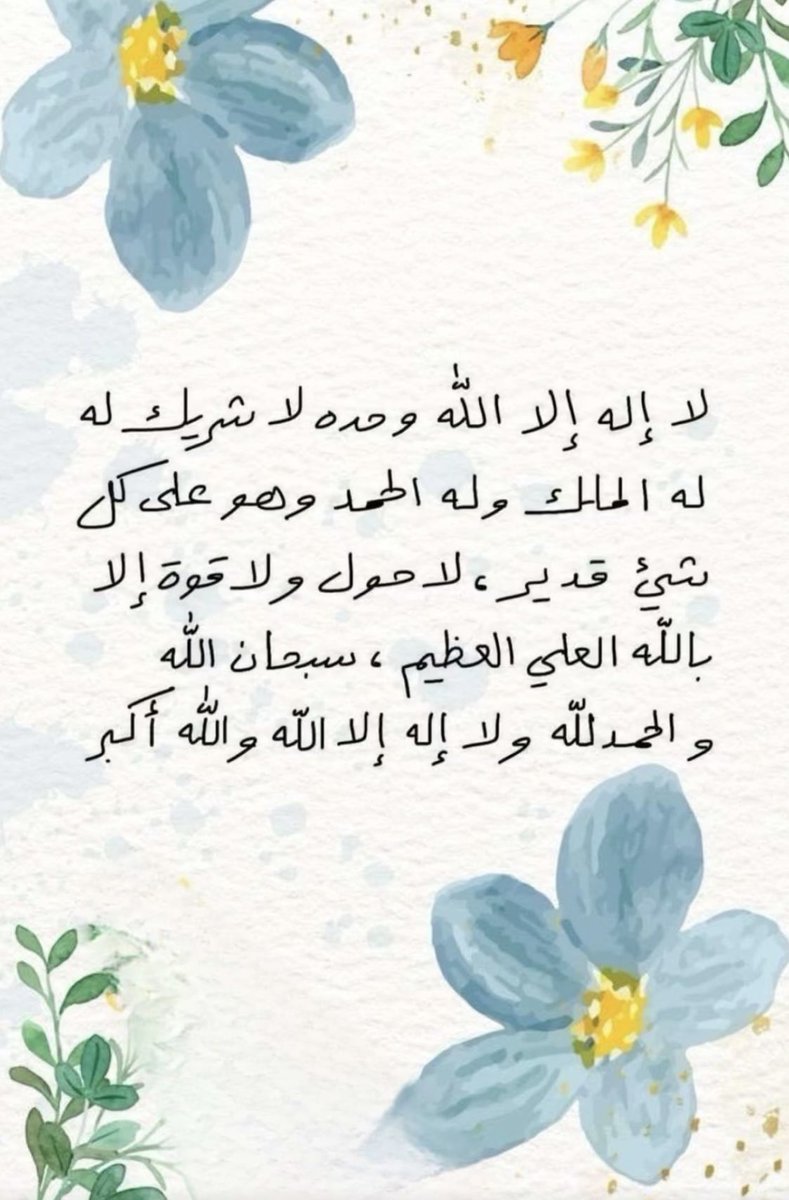 لا إله إلا اللّٰه وحده لا شريك له
له الملك وله الحمد وهو على كل
شيئ قدير ، لا حول ولا قوة إلا
باللّه العلي العظيم ، سبحان اللّٰه
والحمدللّه ولا إله إلا اللّه واللّٰه أكبر